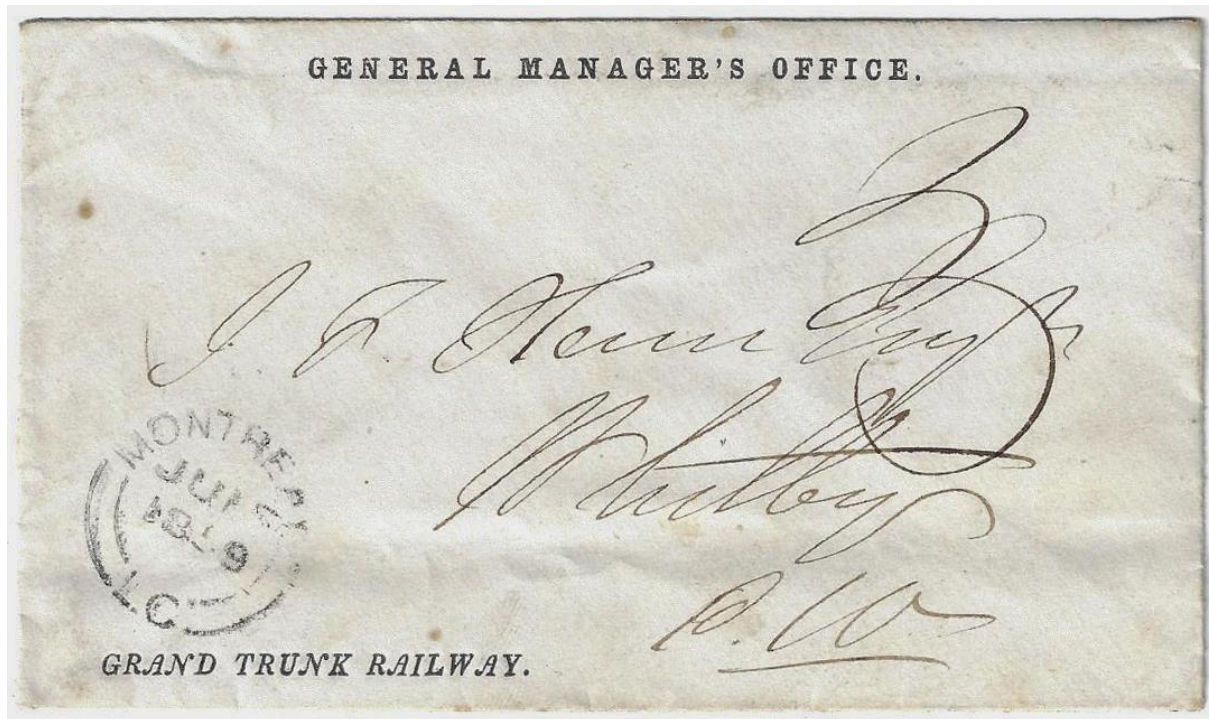 GENERAL MANAGER'S OFFICE.
3
J. F. Esqr
Whitby
C. W
MONTREAL
JU
18 9
L.C.
GRAND TRUNK RAILWAY.